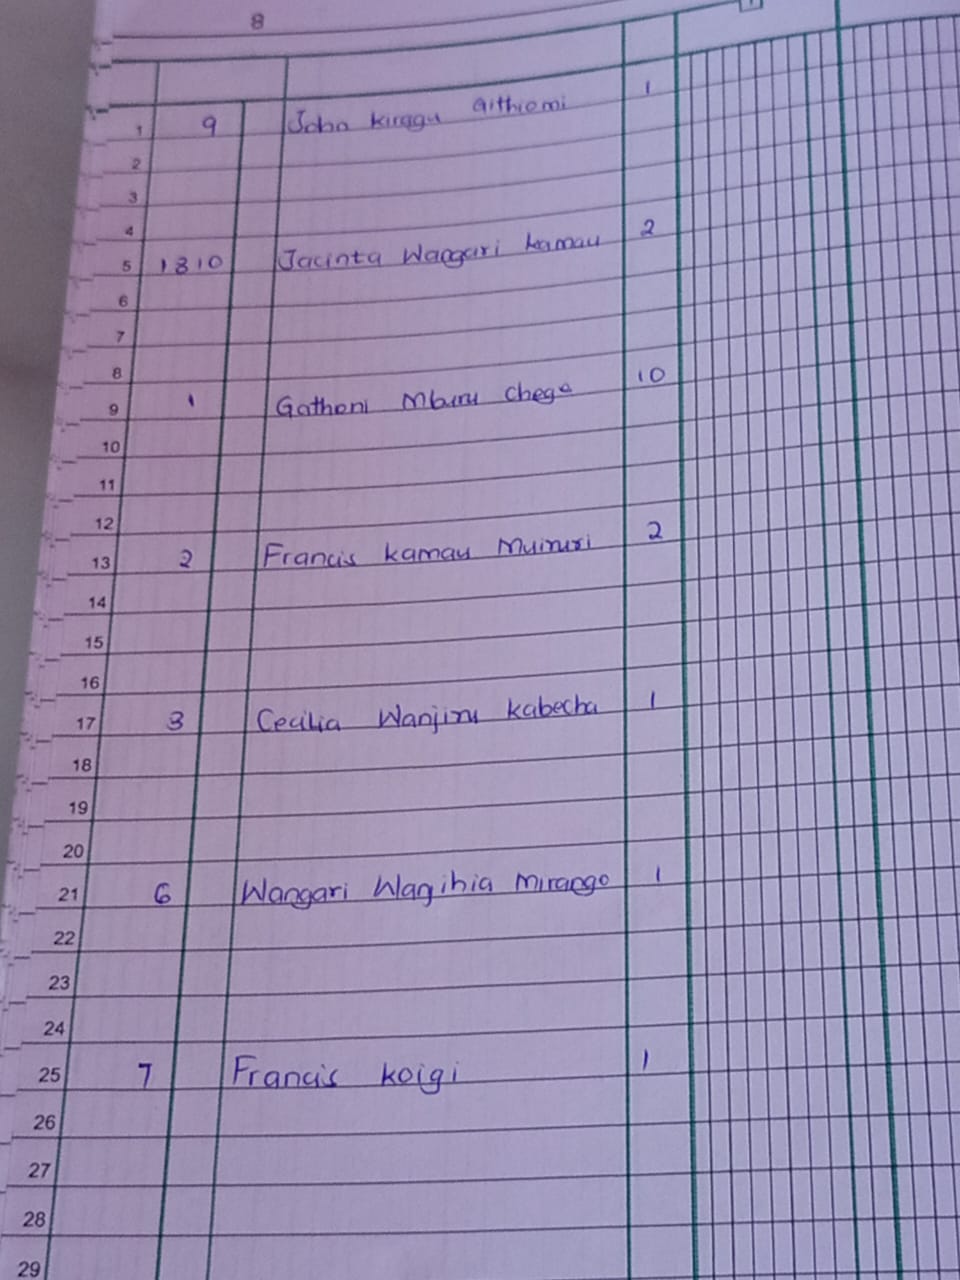 8
1 9 John kiragu Githiomi 1
2
3
4
5 1310 Jacinta Wangari kamau 2
6
7
8
9 1 Gathoni Mburu Chege 10
10
11
12
13 2 Francis kamau Muiruri 2
14
15
16
17 3 Cecilia Wanjiru kabecha 1
18
19
20
21 6 Wangari Wagihia Mirango 1
22
23
24
25 7 Francis koigi 1
26
27
28
29